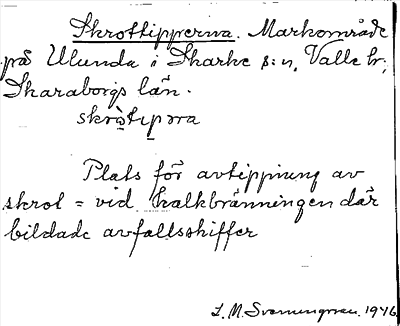 Skrottipperna. Markområde
på Ulunda i Skarke s:n, Valle hd,
Skaraborgs län.
skròtɩpɷra
Plats för avtippning av
skrot = vid kalkbränningen där
bildade avfallsskiffer
L. M. Svenungsson. 1946.